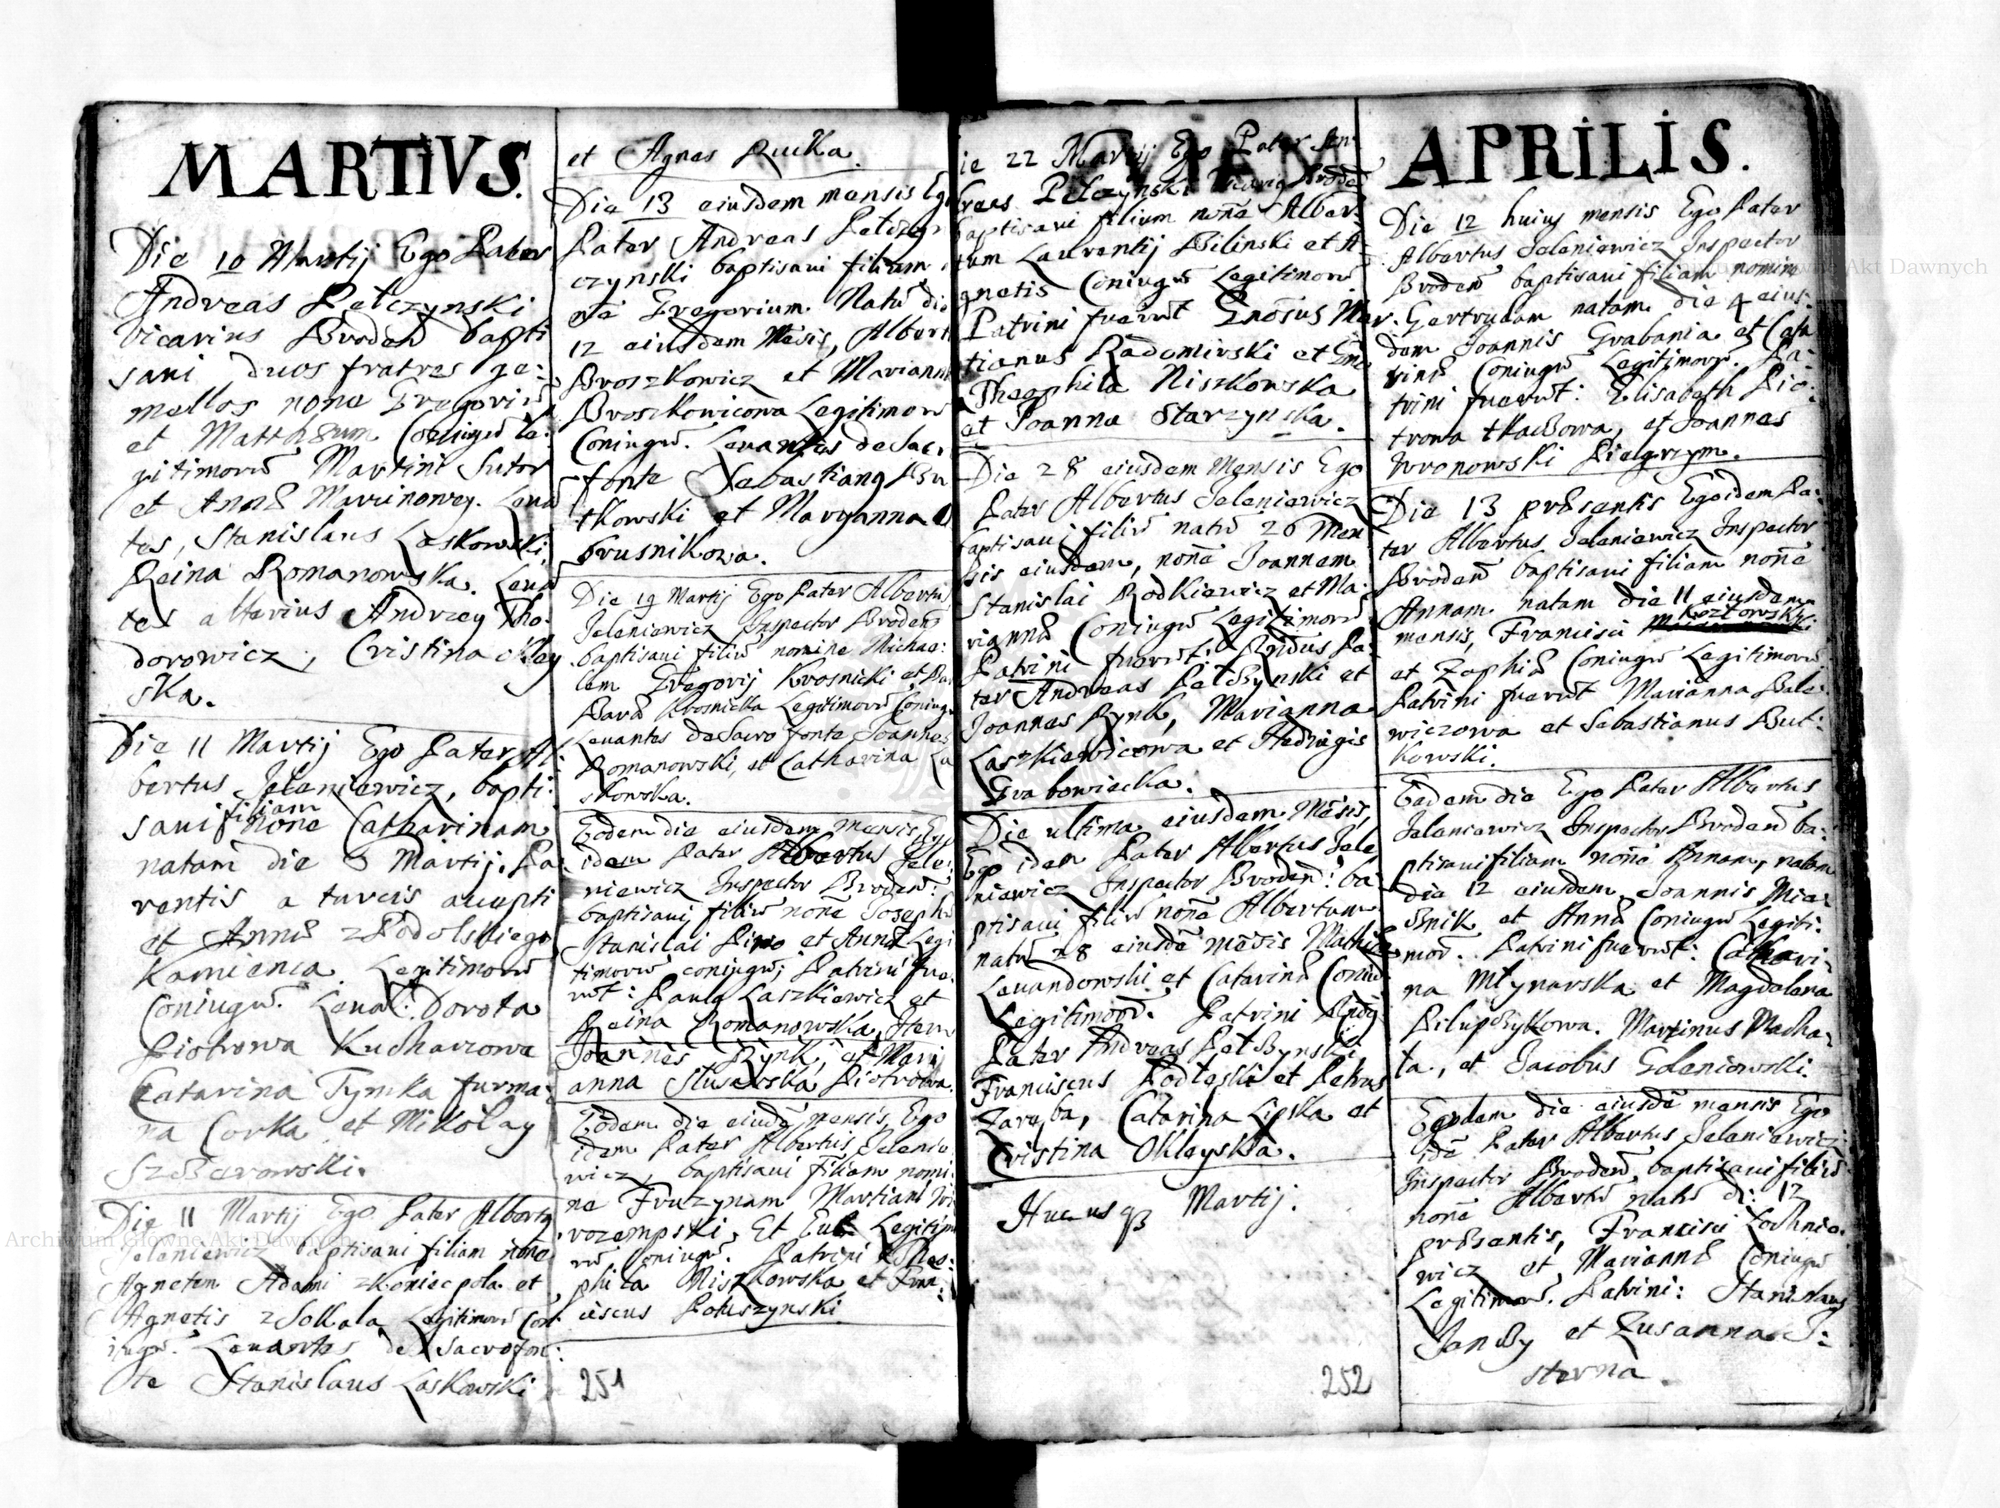 MARTIVS.
Die 10 Martij Ego Pater
Andreas Pełczynski
vicarius Broden̄ bapti
saui duos fratres ge:
mellos none Gregoriū
et Matthæum Coniugū le:
gitimorū Martini Sutor
et Annæ Marcinowey. Leua
tes, Stanislaus Laskowski,
Reina Romanowska. Leua
tes alterius Andrzey Tho:
dorowicz, Cristina okley
ska.
Die 11 Martij Ego Pater Al:
bertus Jeleniewicz, bapti:
saui filiam none Catharinam
natam die 8 Martij. Pa:
rentis a turcis accepti
et Annæ z Podolskiego
Kamienca Legitimorū
Coniugū. Leuat: Dorota
Piotrowa Kucharzowa
Catarina Tymka furma:
na Corka et Mikołay
Szczerowski.
Die 11 Martij Ego Pater Albertus
Jeleniewicz baptisaui filiam none
Agnetem Adami z Koniecpola et
Agnetis z Sokala Legitimorū Con:
iugū. Leuantes de Sacro fon:
te Stanislaus Laskowski
et Agnes Rucka.
Die 13 eiusdem mensis Ego
Pater Andreas Pełczy
czynski baptisaui filium
nē Gregorium Natū die
12 eiusdem Mēsis, Alberti
Broszkowicz et Marianna
Broszkowicowa Legitimorū
Coniugū. Leuantes de Sacr
fonte Sebastianq Bu
tkowski et Maryanna O
brusnikowa.
Die 19 Martij Ego Pater Albertus
Jeleniewicz Inspector Brodens
baptisaui filiū nomine Michae:
lem Gregorij Krosnicki et Bar
Barā Krosnicka Legitimorū Coniugū
Leuantes de Sacro fonte Joannes
Romanowski, et Catharina La
skowska.
Eodem die eiusdem mensis Ego
idem Pater Albertus Jele:
niewicz Inspector Broden̄:
baptisaui filiū none Josephū
Stanislai Piwo et Annæ Legi
timorū coniugū; Patrini fue:
rūt: Paulq Laszkiewicz et
Reina Romanowska, Item
Joannes Rynk, et Mary
anna Slusarska Piotrowa.
Eodem die eiusdē mensis, Ego
idem Pater Albertus Jelenie
wicz, baptisaui filiam nomi:
ne Fruzynam Martiani
rozempski, Et Euæ Legitim
rū Coniugū. Patrini Theo:
phila Niszkowska et Fran:
ciscus Potuszynski.
251
ie 22 Martij Ego Pater An
dreas Pelczynski Vicariq Broden̄
baptisaui filium none Alber:
tum Laurentij Bilinski et A
gnetis Coniugū Legitimorū
Patrini fuerūt Gnōsus Mar:
tianus Radomirski et Gnō
Theophila Niszkowska
et Joanna Starzynska.
Die 28 eiusdem Mensis Ego
Pater Albertus Jeleniewicz
baptisaui filiū natū 26 Men
sis eiusdem, none Joannem
Stanislai Rodkiewicz et Ma:
riannæ Coniugū Legitimorū
Patrini fuerūt: Rñdus Pa:
ter Andreas Pełczynski et
Joannes Rynk, Marianna
Laszkiewicowa et Hedwigis
Grabowiecka.
Die ultima eiusdem Mēsis,
Ego idem Pater Albertus Jele
niewicz Inspector Broden̄: ba
ptisaui filiū none Albertum
natū 28 eiusdē mēsis Mathiæ
Leuandowski et Catarinæ Coniu
Legitimorū. Patrini Rñdq
Pater Andreas Pełczynski,
Franciscus Podleski et Petrus
Zaręba, Catarina Lipska et
Cristina Okleyska.
Hucusqȝ Martij.
252
APRILIS.
Die 12 huius mensis Ego Pater
Albertus Jeleniewicz Inspector
Broden̄ baptisaui filiam nomine
Gertrudam natam die 4 eius:
dem Joannis Grabania et Cata
rinæ Coniugū Legitimorū. Pa:
trini fuerūt: Elisabeth Pio:
trowa tkaczowa, et Joannes
Wronowski Pielgrzym.
Die 13 præsentis Ego idem Pa:
ter Albertus Jeleniewicz Inspector
Broden̄ baptisaui filiam none
Annam natam die 11 eiusdem
mensis, Francisci Kozłowski
et Zophiæ Coniugū Legitimorū
Patrini fuerūt Marianna Bale:
wiczowa et Sebastianus But:
kowski.
Eadem die Ego Pater Albertus
Jeleniewicz Inspector Broden̄ ba:
ptisaui filiam none Annam, natam
die 12 eiusdem Joannis Mie:
cznik et Annæ Coniugū Legiti:
morū. Patrini fuerūt: Cathari:
na Młynarska et Magdalena
Pilipczykowa. Martinus Macha:
ta, et Jacobus Goleniowski.
Eodem die eiusdē mensis Ego
idē Pater Albertus Jeleniewicz
Inspector Broden̄ baptisaui filiū
none Albertū natū di: 12
præsentis, Francisci Lochnie:
wicz et Mariannæ Coniugū
Legitimorū. Patrini: Stanislaus
Janczy et Zusanna J:
sterna.
Archiwum Główne Akt Dawnych